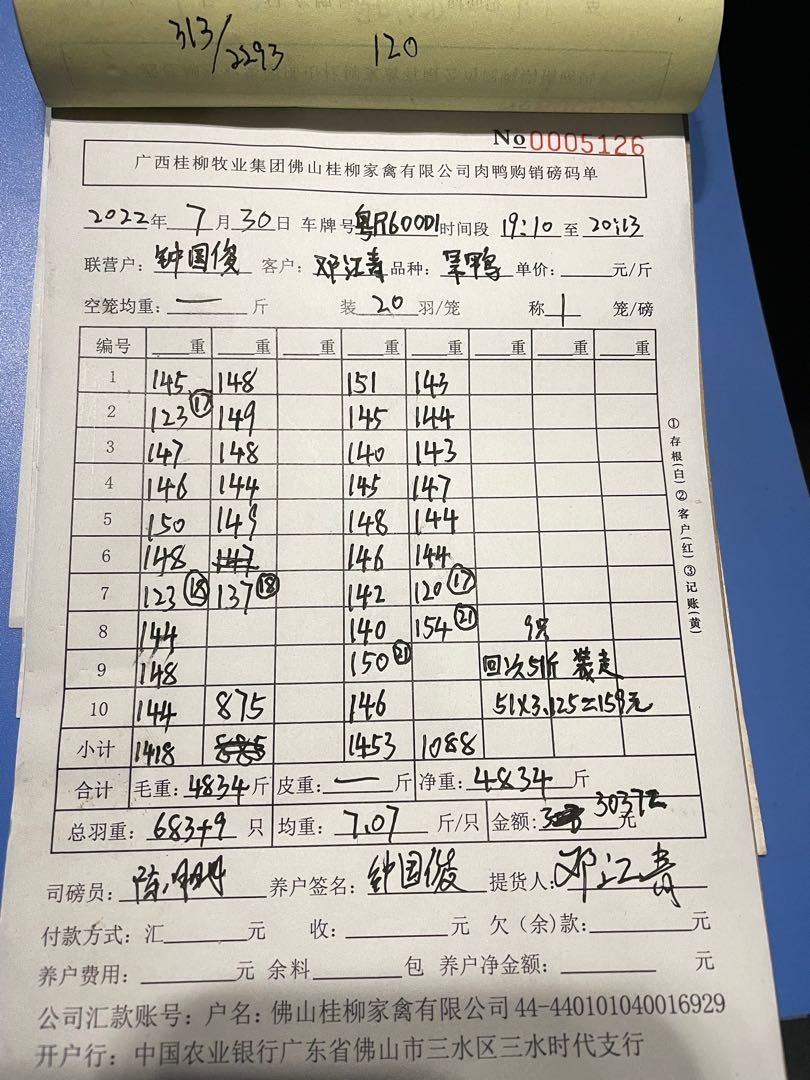 313/2293 120
No 0005126
广西桂柳牧业集团佛山桂柳家禽有限公司肉鸭购销磅码单
2022年 7月30日 车牌号粤R600D1时间段 19:10至20:13
联营户：钟国俊 客户：邓江青 品种： 单价：元/斤
空笼均重：一斤 装20羽/笼 称1笼/磅
编号 重 重 重 重 重 重 重 重
1 145 148 151 143
2 123⑰ 149 145 144
3 147 148 140 143
4 146 144 145 147
5 150 149 148 144
6 148 147 146 144
7 123⑱ 137⑱ 142 120⑰
8 144 140 154㉑ 9只
9 148 150㉑ 回次51斤 装走
10 144 875 146 51×3.125=159元
小计 1418 885 1453 1088
合计 毛重：4834斤 皮重：一斤 净重：4834斤
总羽重：683+9只 均重：7.07斤/只 金额：30371元
司磅员： 养户签名：钟国俊 提货人：邓江青
付款方式：汇元 收：元 欠（余）款：元
养户费用：元 余料包 养户净金额：元
公司汇款账号：户名：佛山桂柳家禽有限公司44-440101040016929
开户行：中国农业银行广东省佛山市三水区三水时代支行
①存根(白)②客户(红)③记账(黄)